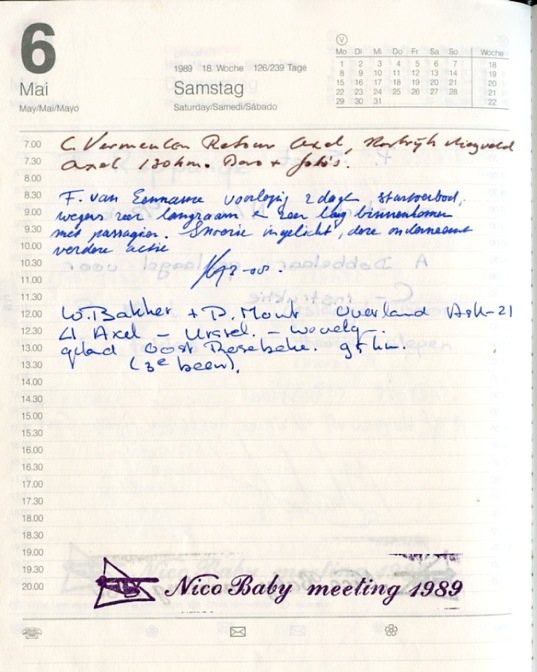 6
Mai
May/Mai/Mayo
1989 18. Woche 126/239 Tage
Samstag
Saturday/Samedi/Sábado
V
Mo Di Mi Do Fr Sa So Woche
1 2 3 4 5 6 7 18
8 9 10 11 12 13 14 19
15 16 17 18 19 20 21 20
22 23 24 25 26 27 28 21
29 30 31 22
7.00 C. Vermeulen Retour Axel, Kortrijk vliegveld
7.30 Axel 130 km. + foto's.
8.00
8.30 F. van voorlopig 2 dagen startverbod,
9.00 wegens zeer langzaam + zeer laag binnenkomen
9.30 met passagier. ingelicht, deze onderneemt
10.00 verdere actie
10.30
11.00
11.30
12.00 W. Bakker + P. Mont Overland Ask-21
12.30 Axel - Ursel - 
13.00 geland Oost Rosebeke. 95 km.
13.30 (3e been).
14.00
14.30
15.00
15.30
16.00
16.30
17.00
17.30
18.00
18.30
19.00
19.30
20.00 Nico Baby meeting 1989